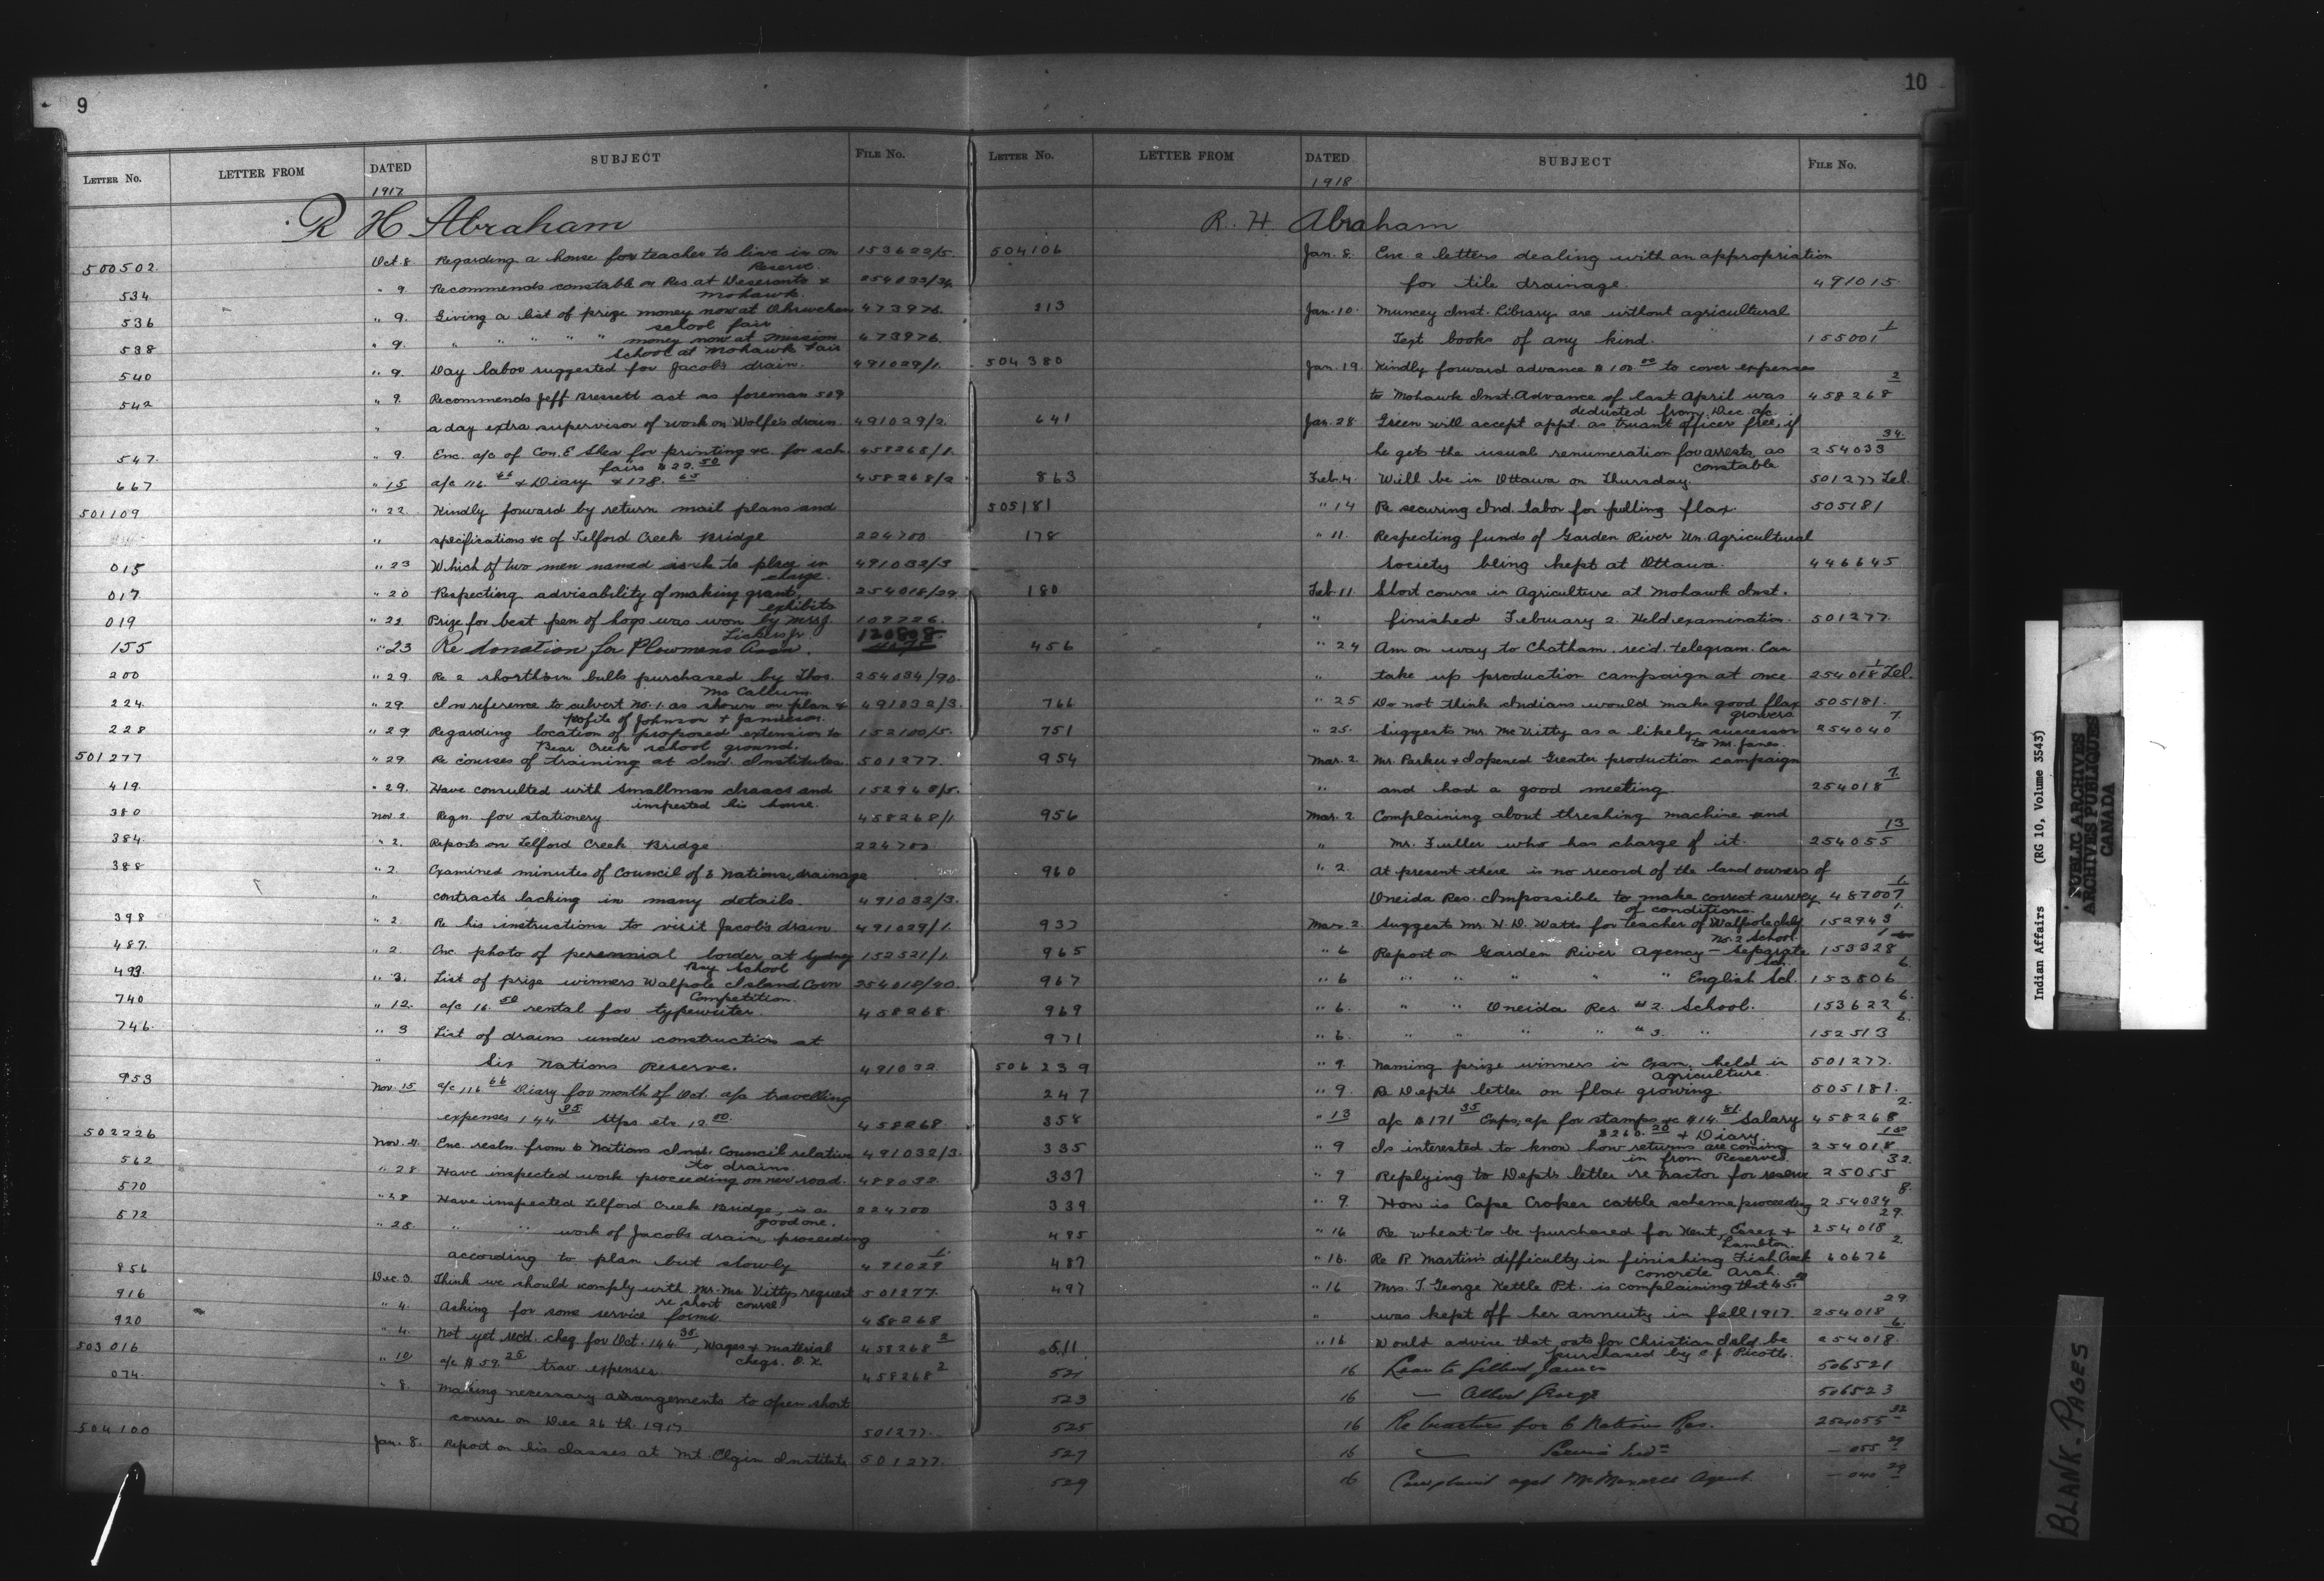 9
LETTER NO. LETTER FROM DATED SUBJECT FILE NO.
1917
R H Abraham
500502 Oct 8 Regarding a house for teacher to live in on 153622/5.
Reserve.
534 " 9 Recommends constable on Res at Deseronto & 254033/34.
Mohawk.
536 " 9. Giving a list of prize money now at Ohsweken 473976.
school fair
538 " 9. " " " " " money now at Mission 473976.
School at Mohawk Fair
540 " 9. Day labor suggested for Jacob's drain. 491029/1.
542 " 9. Recommends Jeff Bressett act as foreman 50¢
" a day extra supervisor of work on Wolfe's drain. 491029/2.
547. " 9. Enc. a/c of Con. E Shea for printing &c. for sch. 458268/1.
fairs $22.50
667 " 15 a/c 116.66 & Diary & 178.65 458268/2
501109 " 22. Kindly forward by return mail plans and
" specifications &c of Telford Creek Bridge 224700.
015 " 23 Which of two men named is he to place in 491032/3
charge.
017. " 20 Respecting advisability of making grant, 254018/29.
exhibits
019 " 22 Prize for best pen of hogs was won by Mrs J. 109726.
Lickers Jr. 120808.
155 " 23 Re donation for Plowmens Assn.
200 " 29 Re 2 shorthorn bulls purchased by Thos. 254034/90.
McCallum
224. " 29. In reference to culvert No. 1. as shown on plan & 491032/3.
profile of Johnson & Jamieson.
228 " 29 Regarding location of proposed extension to 152100/5.
Bear Creek school ground.
501277 " 29. Re courses of training at Ind. Institutes. 501277.
419. " 29. Have consulted with Smallman Isaacs and 152948/5.
inspected his house.
380 Nov 2. Reqn. for stationery 458268/1
384. " 2. Reports on Telford Creek Bridge 224700
388 " 2 Examined minutes of Council of 6 Nations, drainage
" contracts lacking in many details. 491032/3.
398 " 2. Re his instructions to visit Jacob's drain 491029/1.
487. " 2 Enc. photo of perennial border at Sydney 152521/1
Bay School
493. " 3. List of prize winners Walpole Island Corn 254018/20.
Competition.
740 " 12. a/c 16.50 rental for typewriter. 458268.
746. " 3 List of drains under construction at
" Six Nations Reserve. 491032.
953 Nov 15 a/c 116.66 Diary for month of Oct. a/c travelling
expenses 144.35 Stps etc 12.00 458268.
502226 Nov. Enc. resln. from 6 Nations Ind. Council relative 491032/3.
to drains.
562 " 28 Have inspected work proceeding on new road. 488032.
570 " 28 Have inspected Telford Creek Bridge, is a 224700
good one.
572 " 28. " " work of Jacobs drain, proceeding
according to plan but slowly 491029 1.
856 Dec. 3. Think we should comply with Mr. Mc Vitty's request 501277.
re short course
916 " 4. Asking for some service forms. 458268
920 " 4. Not yet rec'd. cheq for Oct. 144.35, Wages & material 458268 2
cheqs. O.K.
503016 " 10 a/c $59.25 trav. expenses. 458268 2
074. " 8. Making necessary arrangements to open short
course on Dec 26 th. 1917 501277.
504100 Jan. 8. Report on his classes at Mt. Elgin Institute 501277.
10
LETTER NO. LETTER FROM DATED SUBJECT FILE NO.
1918
R. H. Abraham
504106 Jan. 8. Enc 2 letters dealing with an appropriation
for tile drainage. 491015.
213 Jan. 10. Muncey Inst. Library are without agricultural
Text books of any kind. 155001 1
504380 Jan. 19. Kindly forward advance $100.00 to cover expenses
to Mohawk Inst. Advance of last April was 458268 2
deducted from Dec. a/c
641 Jan. 28. Green will accept appt. as truant officer free, if
he gets the usual renumeration for arrests as 254033 34
constable
863 Feb. 4. Will be in Ottawa on Thursday. 501277 Tel.
505181 " 14 Re securing Ind. labor for pulling flax. 505181
178 " 11. Respecting funds of Garden River Un. Agricultural
Society being kept at Ottawa. 446645
180 Feb. 11. Short course in Agriculture at Mohawk Inst.
" finished February 2. Held examination. 501277.
456 " 24 Am on way to Chatham, rec'd. telegram. Can
" take up production campaign at once 254018 1 Tel.
766 " 25 Do not think Indians would make good flax 505181.
growers
751 " 25. Suggests Mr. Mc Vitty as a likely successor 254040 7.
to Mr. Janes.
954 Mar. 2. Mr. Parker & I opened Greater production campaign
" and had a good meeting 254018 7.
956 Mar. 2 Complaining about threshing machine and
" Mr. Fuller who has charge of it. 254055 13
960 " 2. At present there is no record of the land owners of
Oneida Res. Impossible to make correct survey 487007 1
of conditions.
937 Mar. 2. Suggests Mr. H. D. Watts for teacher of Walpole Isld. 152943 1.
No. 2 School.
965 " 6 Report on Garden River Agency — Separate 153328
Sch.
967 " 6 " " " " " English Sch. 153506 6.
969 " 6. " " Oneida Res. #2. School. 153622 6.
971 " 6. " " " " #3. " 152513 6.
506239 " 9. Naming prize winners in Exam. held in 501277.
agriculture.
247 " 9. Re Dept's letter on flax growing. 505181.
358 " 13 a/c $171.35 Exps, a/c for stamps &c $14.81. Salary 458268 2.
$260.20 & Diary.
335 " 9 Is interested to know how returns are coming 254018
in from Reserves.
337 " 9 Replying to Dept's letter re tractor for reserve 25055 32.
339 " 9. How is Cape Croker cattle scheme proceeding 254034 8.
485 " 16 Re wheat to be purchased for Kent, Essex & 254018 29.
Lambton.
487 " 16. Re R Martin's difficulty in finishing Fish Creek 60676 2.
concrete Arch.
497 " 16 Mrs. T. George Kettle Pt. is complaining that 45.00
" was kept off her annuity in fall 1917. 254018 29
511 " 16 Would advise that oats for Christian Isld. be 254018 6.
purchased by C. J. Picotte.
521 16 Loan to Gilbert James 506521
523 16 — Albert George 506523
525 16 Re tractors for 6 Nations Res. 254055 32
527 16 — 055 29
529 16 Complaint agst Agent. — 040 29
Indian Affairs (RG 10, Volume 3543)
PUBLIC ARCHIVES
ARCHIVES PUBLIQUES
CANADA
BLANK-PAGES